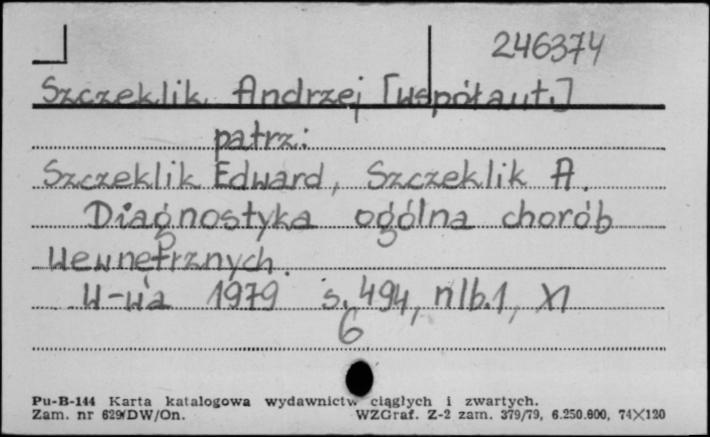 246374
Szczeklik Andrzej [współaut.]
patrz:
Szczeklik Edward, Szczeklik A.
Diagnostyka ogólna chorób
wewnętrznych.
W-wa 1979 s. 494, nlb.1, XI
6
Pu-B-144 Karta katalogowa wydawnictw ciągłych i zwartych.
Zam. nr 629/DW/On. WZGraf. Z-2 zam. 379/79, 6.250.000, 74X120